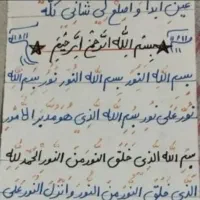 عين ابدا و اصلح لي شاني كله
بسم الله الرحمن الرحيم
بسم الله النور بسم الله النور نور بسم الله
نور على نور بسم الله الذي هو مدبر الأمور
بسم الله الذي خلق النور من النور الحمد لله
الذي خلق النور من النور و انزل النور على